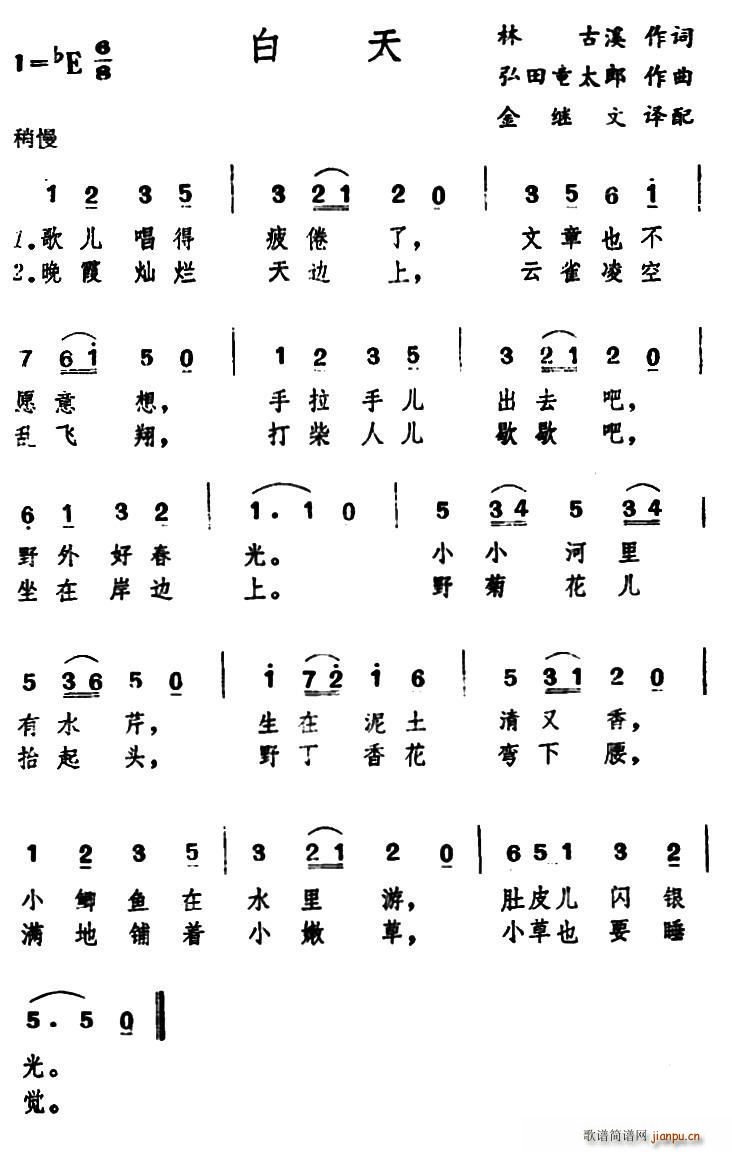 白 天
1=♭E 6/8
林 古溪 作词
弘田竜太郎 作曲
金 继 文 译配
稍慢
1 2 3 5 | 3 21 2 0 | 3 5 6 i |
1.歌儿 唱得 疲倦 了, 文章也不
2.晚霞 灿烂 天边 上, 云雀凌空
7 6i 5 0 | 1 2 3 5 | 3 21 2 0 |
愿意 想, 手拉手儿 出去 吧,
乱飞 翔, 打柴人儿 歇歇 吧,
6 1 3 2 | 1. 1 0 | 5 34 5 34 |
野外好春 光。 小小 河里
坐在岸边 上。 野菊 花儿
5 36 5 0 | i 72 i 6 | 5 31 2 0 |
有水 芹, 生在 泥土 清又 香,
抬起 头, 野丁 香花 弯下 腰,
1 2 3 5 | 3 21 2 0 | 651 3 2 |
小鲫鱼在 水里 游, 肚皮儿闪银
满地铺着 小嫩 草, 小草也要睡
5. 5 0
光。
觉。
歌谱简谱网 jianpu.cn